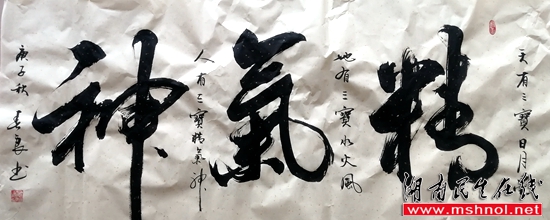 天有三寶日月
精
地有三寶水火風
氣
人有三寶精氣神
神
庚子秋
春良书
湖南民生在线
www.mshnol.net